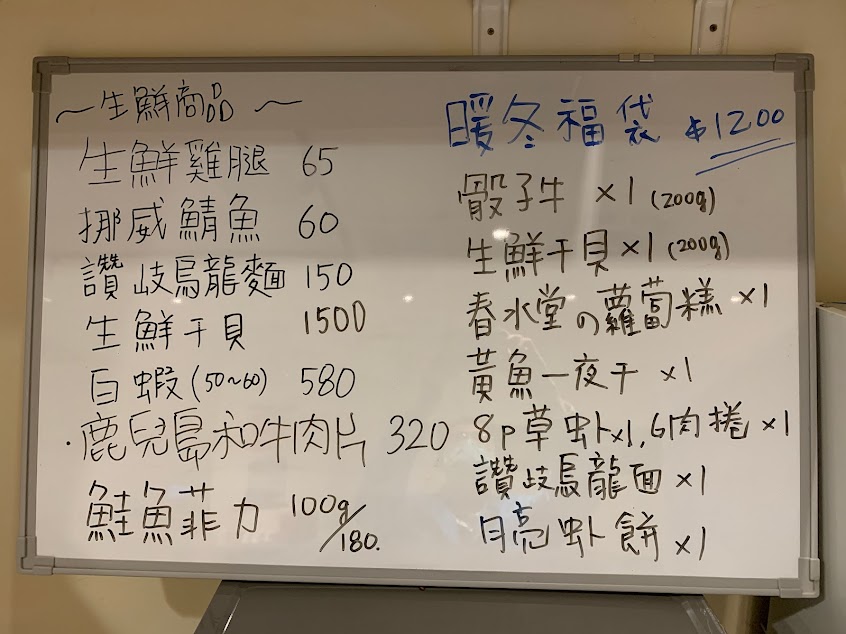 ～生鮮商品～
生鮮雞腿 65
挪威鯖魚 60
讚岐烏龍麵 150
生鮮干貝 1500
白蝦(50~60) 580
·鹿兒島和牛肉片 320
鮭魚菲力 100g/180.
暖冬福袋 $1200
骰子牛 x1 (200g)
生鮮干貝 x1 (200g)
春水堂の蘿蔔糕 x1
黃魚一夜干 x1
8p草虾x1,G肉捲 x1
讚岐烏龍面 x1
月亮虾餅 x1